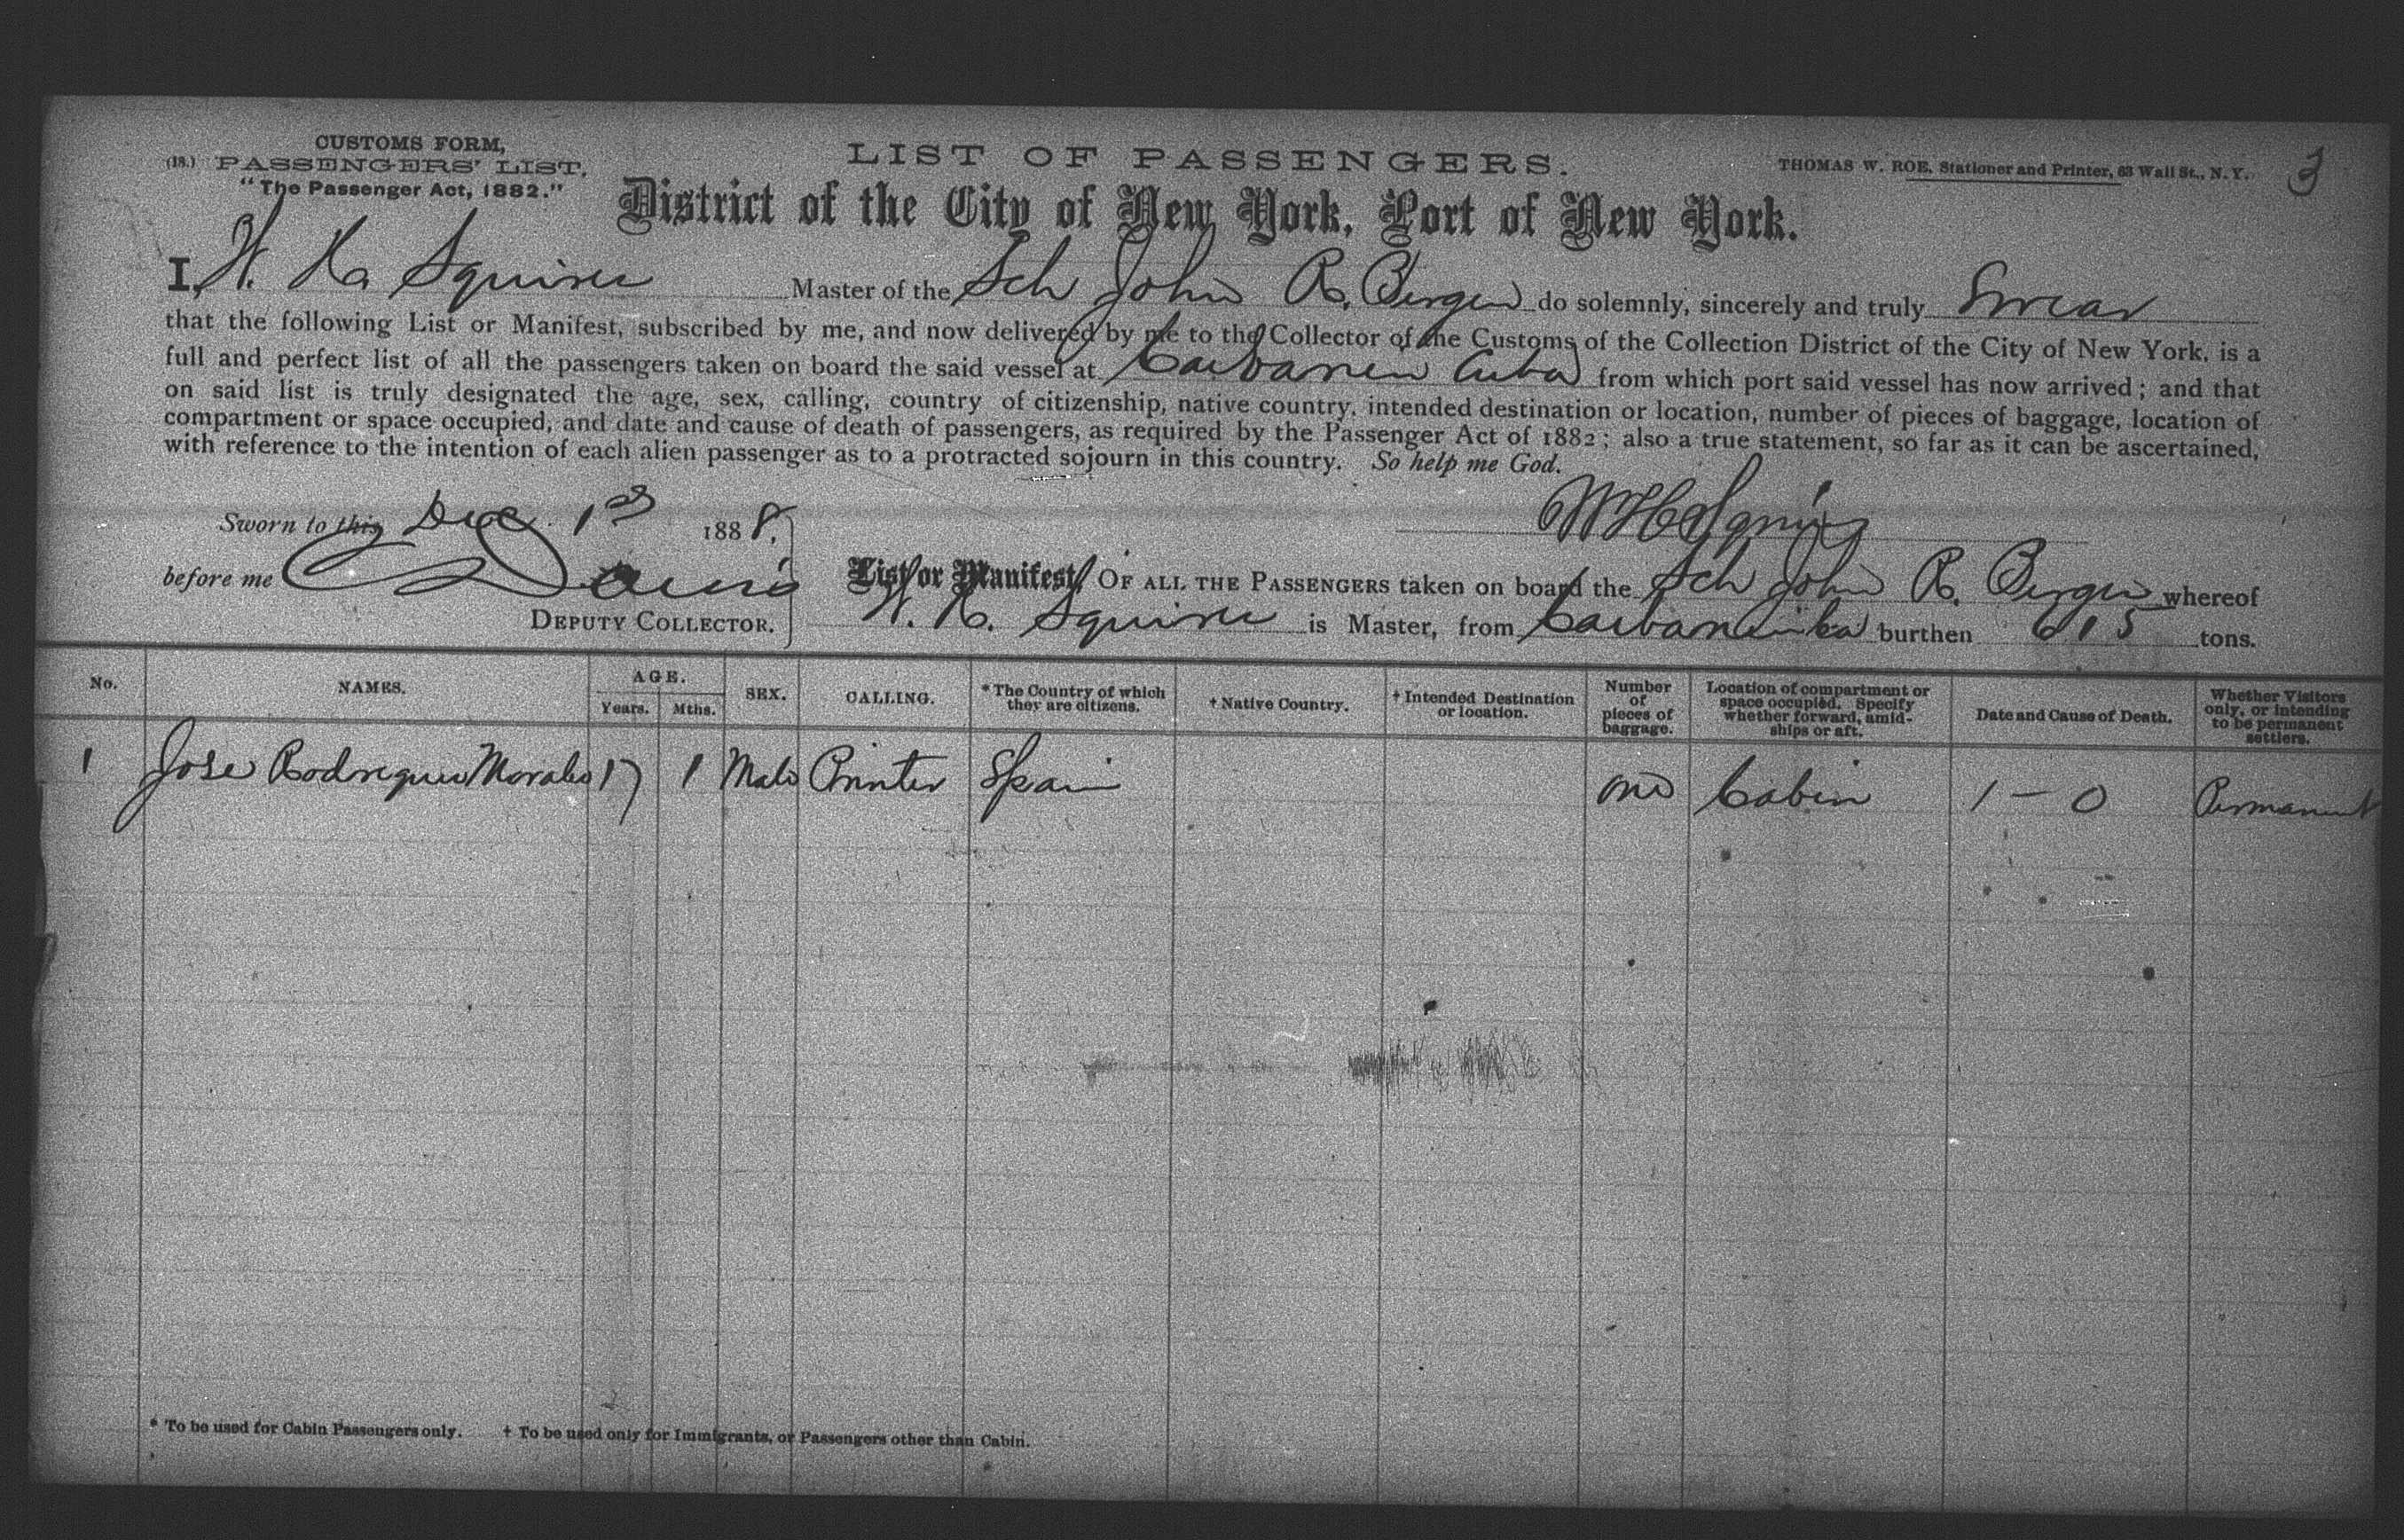 CUSTOMS FORM,
(18.) PASSENGERS' LIST,
"The Passenger Act, 1882."
LIST OF PASSENGERS.
THOMAS W. ROE, Stationer and Printer, 63 Wall St., N. Y.
3
District of the City of New York, Port of New York.
I, W. H. Squires Master of the Sch John R. Bergen do solemnly, sincerely and truly Swear
that the following List or Manifest, subscribed by me, and now delivered by me to the Collector of the Customs of the Collection District of the City of New York, is a
full and perfect list of all the passengers taken on board the said vessel at Caibarien Cuba from which port said vessel has now arrived; and that
on said list is truly designated the age, sex, calling, country of citizenship, native country, intended destination or location, number of pieces of baggage, location of
compartment or space occupied, and date and cause of death of passengers, as required by the Passenger Act of 1882; also a true statement, so far as it can be ascertained,
with reference to the intention of each alien passenger as to a protracted sojourn in this country. So help me God.
Sworn to this Dec 1st 1888.
W H Squires
before me Davis
DEPUTY COLLECTOR.
List or Manifest, OF ALL THE PASSENGERS taken on board the Sch John R. Bergen whereof
W. H. Squires is Master, from Caibarien Cuba burthen 615 tons.
No. NAMES. AGE. Years. Mths. SEX. CALLING. *The Country of which they are citizens. †Native Country. †Intended Destination or location. Number of pieces of baggage. Location of compartment or space occupied. Specify whether forward, amidships or aft. Date and Cause of Death. Whether Visitors only, or intending to be permanent settlers.
1 Jose Rodrigues Morales 17 1 Male Printer Spain one Cabin 1 – 0 Permanent
* To be used for Cabin Passengers only. † To be used only for Immigrants, or Passengers other than Cabin.